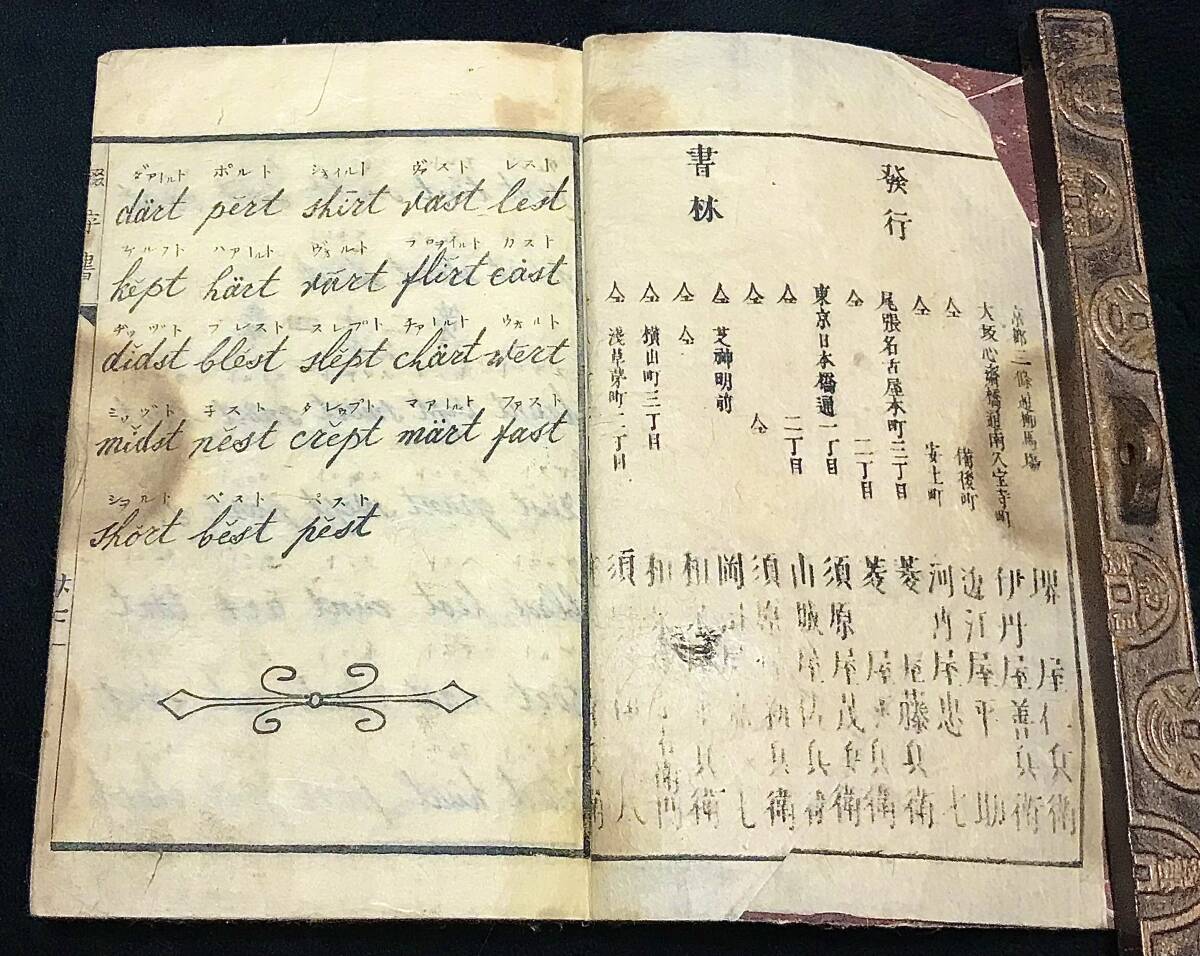 綴字書
ダアルト ポルト シヨイルト ヴァスト レスト
därt pẽrt shĩrt vast lĕst
ケルプト ハアルト ヴォルト フロヲイルト カスト
kĕpt härt flĩrt cåst
ヂッヅト ブレスト スレプト チァアルト ウォルト
dĭdst blĕst slĕpt chärt wẽrt
ミッヅト ネスト クレゥプト マアルト ファスト
mĭdst nĕst crĕpt märt fast
ショルト ベスト ペスト
shôrt bĕst pĕst
廿七
發行
書林
京都二條通柳馬塲 堺屋仁兵衛
大坂心斎橋通南久宝寺町 伊丹屋善兵衛
仝 備後町 近江屋平助
仝 安土町 河内屋忠七
尾張名古屋本町三丁目 菱屋藤兵衛
仝 二丁目 菱屋 兵衛
東京日本橋通一丁目 須原屋茂兵衛
仝 二丁目 山城屋佐兵衛
仝 仝 須原屋新兵衛
芝神明前 岡田屋 七
仝 仝 和泉屋 兵衛
仝 横山町三丁目 和泉屋 右衛門
仝 浅草茅町二丁目 須原屋伊八